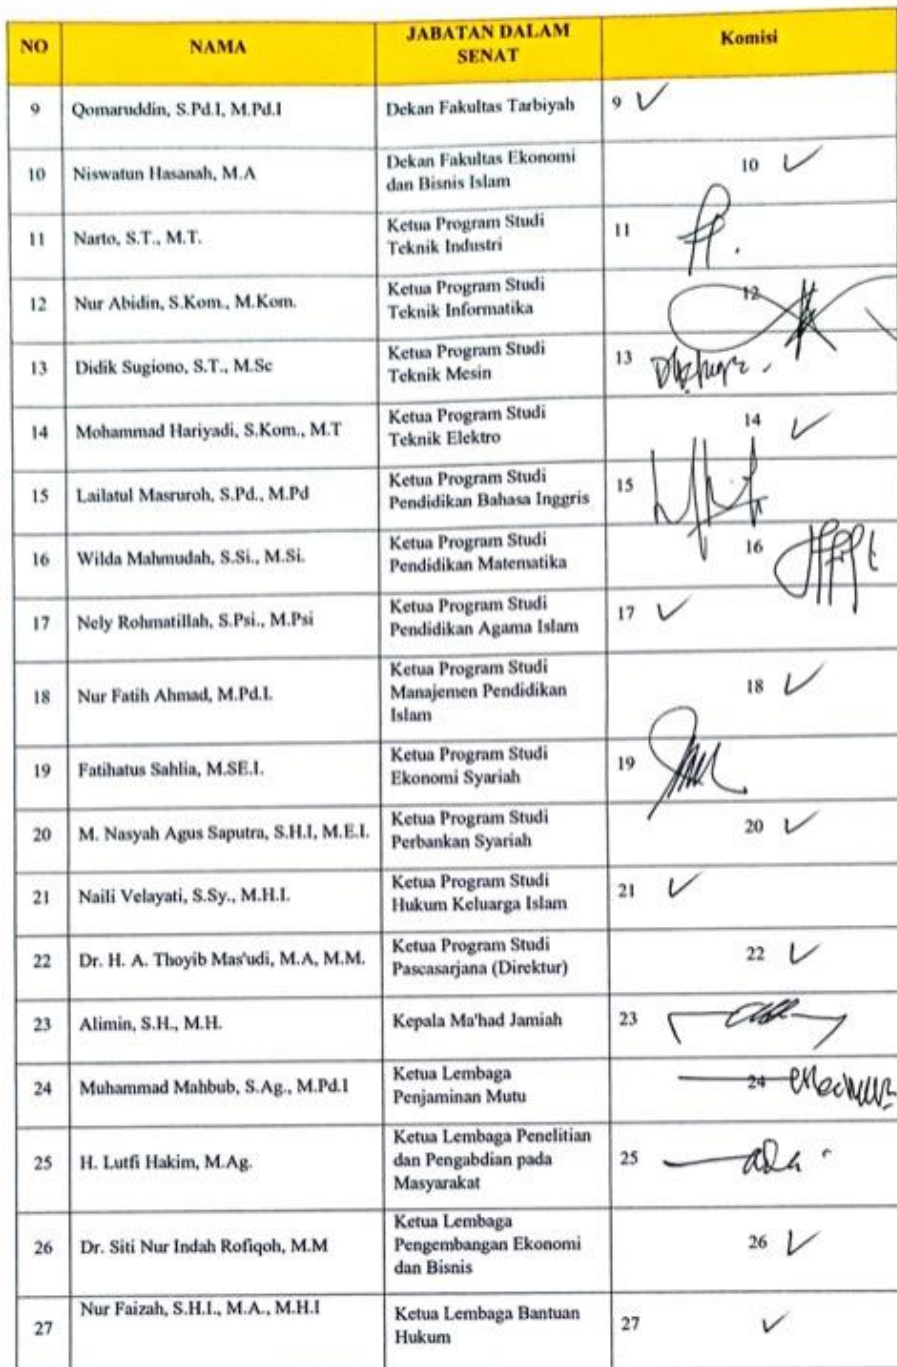 NO NAMA JABATAN DALAM SENAT Komisi
9 Qomaruddin, S.Pd.I, M.Pd.I Dekan Fakultas Tarbiyah 9 ✓
10 Niswatun Hasanah, M.A Dekan Fakultas Ekonomi
dan Bisnis Islam 10 ✓
11 Narto, S.T., M.T. Ketua Program Studi
Teknik Industri 11
12 Nur Abidin, S.Kom., M.Kom. Ketua Program Studi
Teknik Informatika 12
13 Didik Sugiono, S.T., M.Sc Ketua Program Studi
Teknik Mesin 13
14 Mohammad Hariyadi, S.Kom., M.T Ketua Program Studi
Teknik Elektro 14 ✓
15 Lailatul Masruroh, S.Pd., M.Pd Ketua Program Studi
Pendidikan Bahasa Inggris 15
16 Wilda Mahmudah, S.Si., M.Si. Ketua Program Studi
Pendidikan Matematika 16
17 Nely Rohmatillah, S.Psi., M.Psi Ketua Program Studi
Pendidikan Agama Islam 17 ✓
18 Nur Fatih Ahmad, M.Pd.I. Ketua Program Studi
Manajemen Pendidikan
Islam 18 ✓
19 Fatihatus Sahlia, M.SE.I. Ketua Program Studi
Ekonomi Syariah 19
20 M. Nasyah Agus Saputra, S.H.I, M.E.I. Ketua Program Studi
Perbankan Syariah 20 ✓
21 Naili Velayati, S.Sy., M.H.I. Ketua Program Studi
Hukum Keluarga Islam 21 ✓
22 Dr. H. A. Thoyib Mas'udi, M.A, M.M. Ketua Program Studi
Pascasarjana (Direktur) 22 ✓
23 Alimin, S.H., M.H. Kepala Ma'had Jamiah 23
24 Muhammad Mahbub, S.Ag., M.Pd.I Ketua Lembaga
Penjaminan Mutu 24
25 H. Lutfi Hakim, M.Ag. Ketua Lembaga Penelitian
dan Pengabdian pada
Masyarakat 25
26 Dr. Siti Nur Indah Rofiqoh, M.M Ketua Lembaga
Pengembangan Ekonomi
dan Bisnis 26 ✓
27 Nur Faizah, S.H.I., M.A., M.H.I Ketua Lembaga Bantuan
Hukum 27 ✓